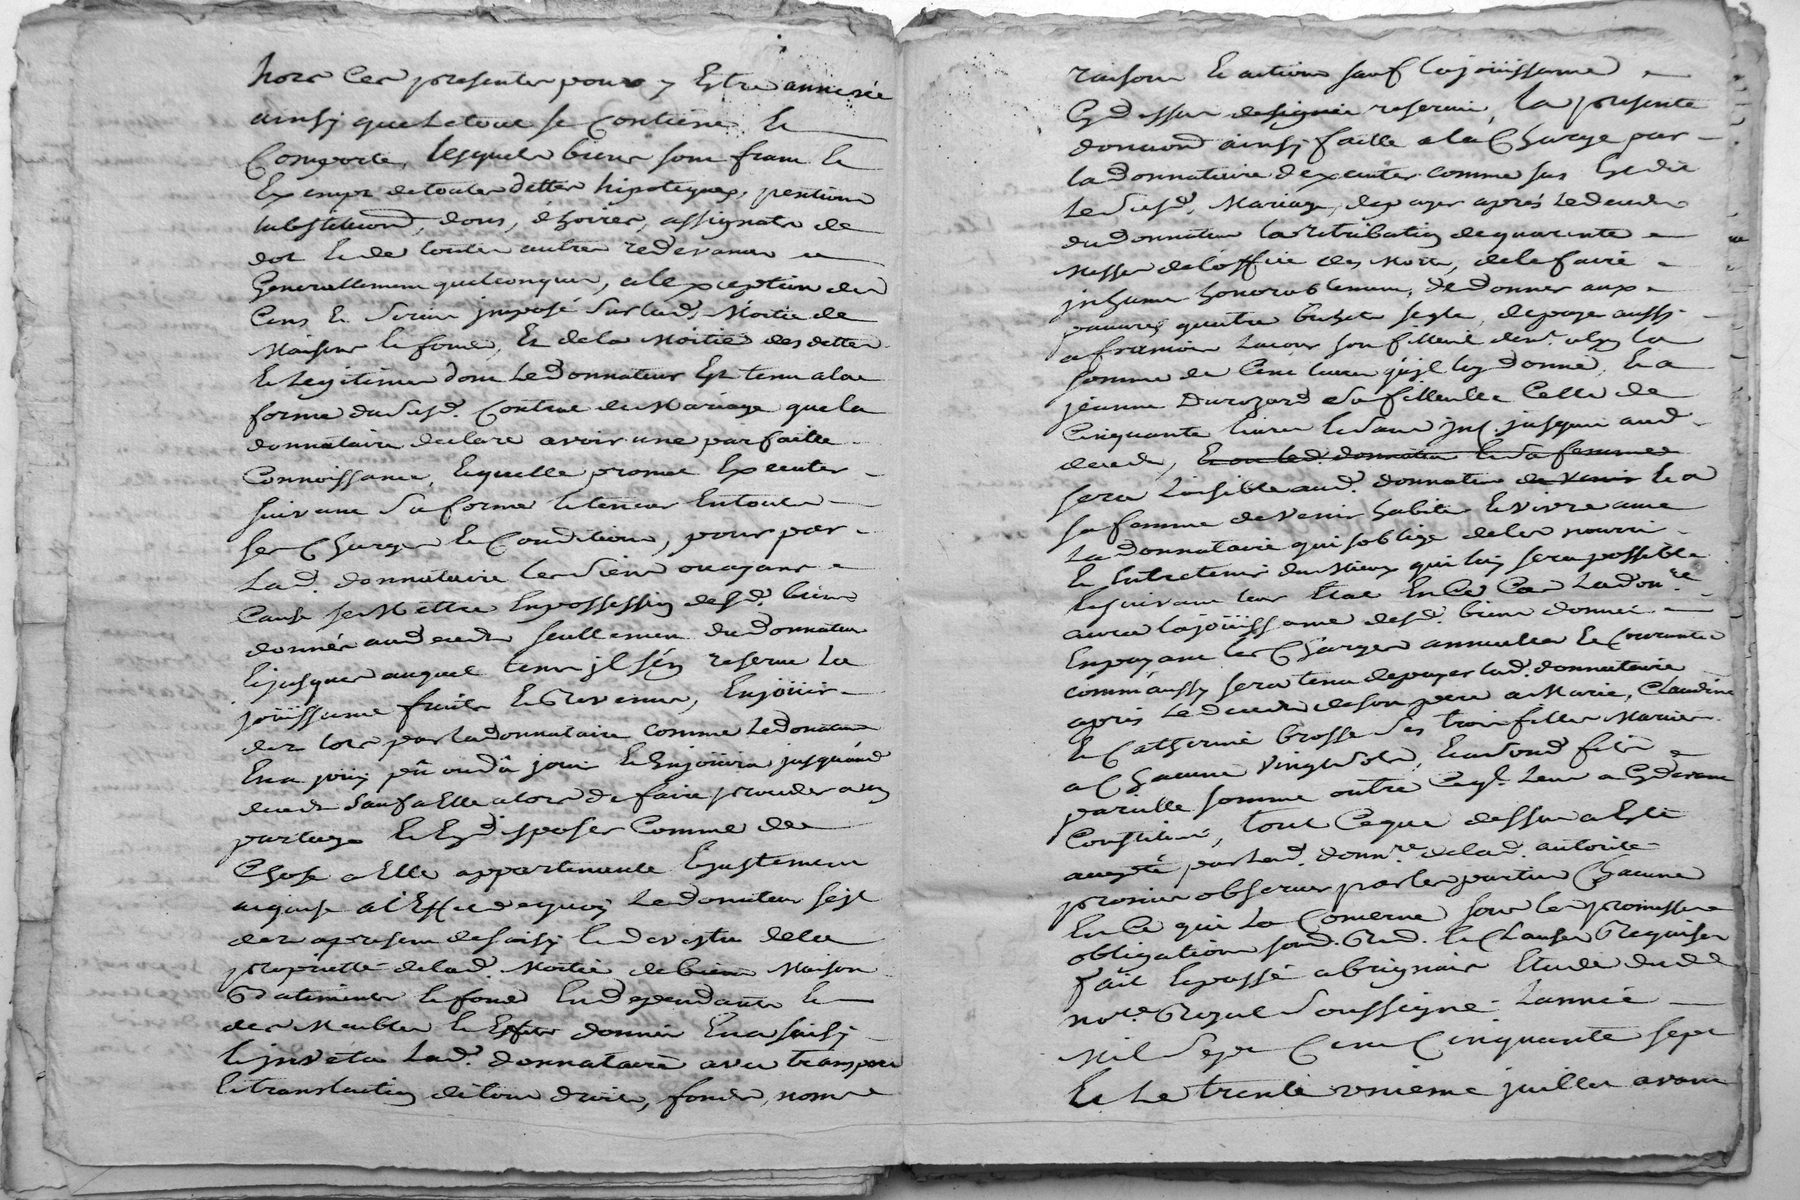 hors ces presentes pour y Estre annexée
ainsy que Letout se Contient Et
Comporte, lesquels biens sont franc Et
Exempt de toutes dettes hipoteques, pentions
substitution, dons, d'hoirs, assignats de
dot Et de toutes autres redevances
Generallement quelconques, a le xception des
Cens Et servis imposé sur lad. Moitié de
Maisons Et fonds, Et de la Moitié des dettes
Et Legitimes dont Le donnateur Est tenu a la
forme du susd. Contrat de Mariage que la
donnataire declare avoir une parfaitte
Connoissance, lequelle promet Executer
suivant sa forme Et teneur Entoute
ses Charges Et Conditions, pour par
Lad. donnataire les siens ou ayans
Cause se Mettre En possession desd. biens
donnés aud. decedz seullement du donnateur
Et jusques auquel tems jl s'En reserve La
joüissance fruits Et Revenus, Enjoüir
dez lors par la donnataire comme Ledonnateur
En a joüy pû ou dû jouir Et Enjoüira jusqu'aud
decedz sauf a Elle alors de faire proceder au
partage Et En disposer Comme de
Chose a Elle appartenante Et justement
acquise a l'Effet de quoy Le donnateur s'est
dez apresent desaisy Et devestu de la
propriette de lad. Moitié de biens Maison
Batiments Et fonds En dependants Et
des Meubles Et Effets donnés En a saisy
Et jnvétu Lad. donnataire avec transport
Et translation de tous droits, fonds, noms
raisons Et actions sauf la joüissance
Cy dessus designée reservée, la presente
donnaon ainsy faitte a la Charge par
la donnataire d'executer comme sus Est dit
Le susd. Mariage, de payer aprés Ledecedz
du donnateur la retribution de quarante
Messes de l'office des Morts, de le faire
jnhumer honorablement, de donner aux
pauvres quatre bichets segle, de payer aussi
a francois Lacour son filleul
somme de Cent livres qu'jl luy donne, Et a
jeanne Durozard sa filleulle Celle de
Cinquante livres Et sans jnt. jusques aud.
decedz, Et ou led. donnateur Et sa femme
sera Loisible aud. donnateur de venir Et a
sa femme de venir habiter Et vivre avec
La donnataire qui s'oblige de les nourrir
Et Entretenir du Mieux qui luy sera possible
Et suivant leur Etat En Ce Cas La don.re
aura la joüissance desd. biens donnés
En payant les Charges annuelles Et Courantes
comm'aussy sera tenu de payer lad. donnataire
aprés Ledecedz de son pere a Marie, Claudine
Et Catherine brosse ses trois filles Mariées
a Chacune vingt sols,
pareille somme outre Ce qu'jl Leur a Cy devant
Constitué, tout Ceque dessus a Esté
accepté par Lad. donn.re de lad. autorité
promis observer par les parties Chacune
En Ce qui La Concerne sous les promesses
obligations soud. Red. Et Clauses Requises
fait Et passé a brignais Etude dud.
not.re Royal soussigné Lannée
Mil sept Cent Cinquante sept
Et Le trente vnieme juillet avant